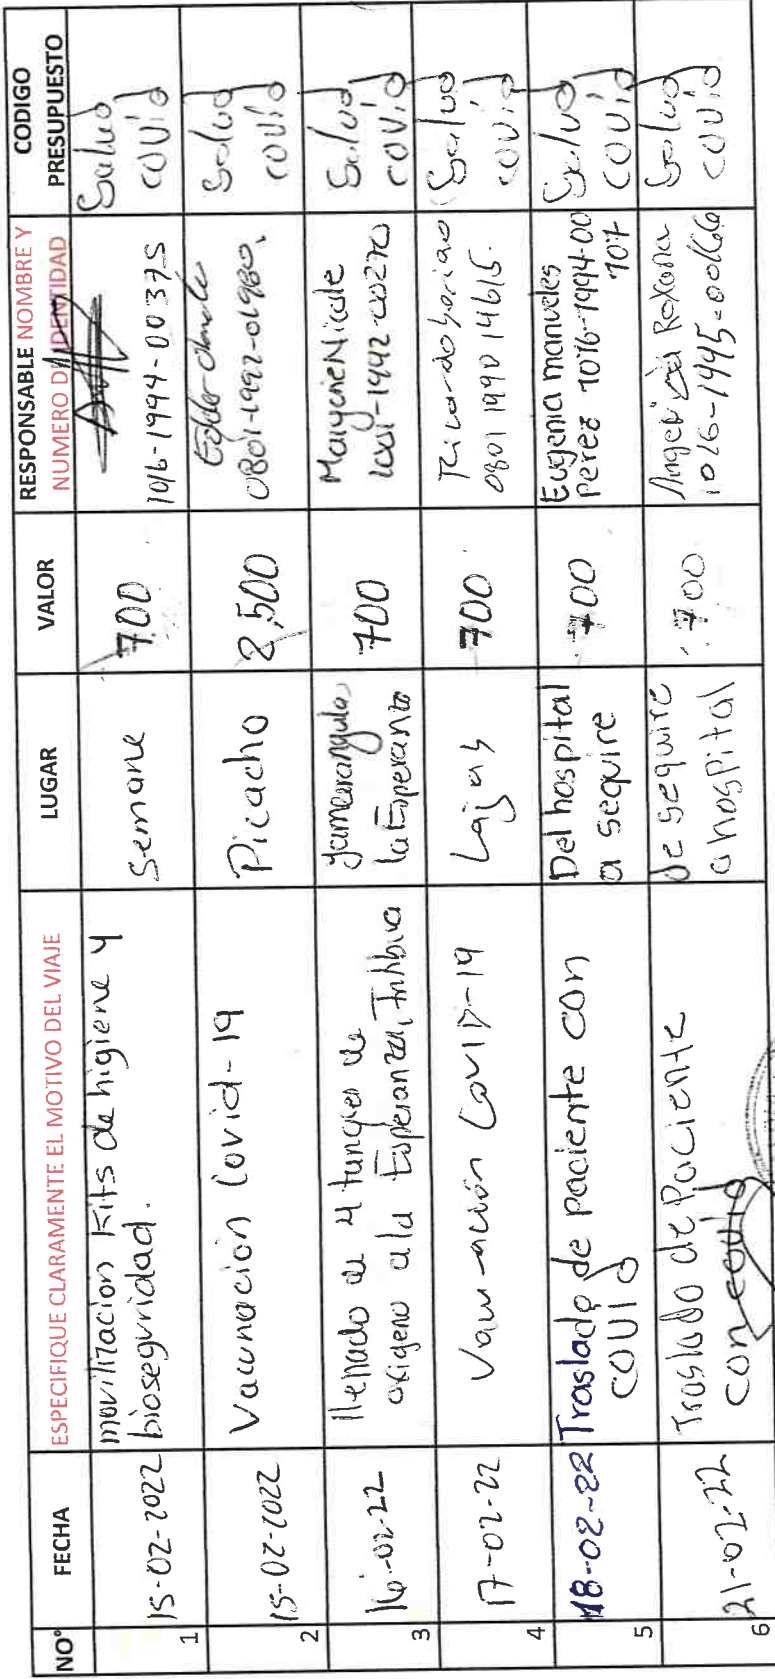 NO° FECHA ESPECIFIQUE CLARAMENTE EL MOTIVO DEL VIAJE LUGAR VALOR RESPONSABLE NOMBRE Y NUMERO DE IDENTIDAD CODIGO PRESUPUESTO
1 15-02-2022 movilizacion Kits de higiene y
bioseguridad. semane 700 1016-1994-00375 Salud
covid
2 15-02-2022 Vacunacion Covid-19 Picacho 2,500
0801-1992-01980. Salud
covid
3 16-02-22 llenado de 4 tanques de
oxigeno a la Esperanza, Intibuca
la Esperanza 700 Nicole
Salud
covid
4 17-02-22 Vacunación Covid-19 Lajas 700 Ricardo
0801 1990 14615. Salud
covid
5 18-02-22 Traslado de paciente con
COVID Del hospital
a sequire 700 Eugenia manueles
Perez 1016-1994-00
107 Salud
COVID
6 21-02-22 Traslado de Paciente
con covid de sequire
a hospital 700 Roxana
1016-1995-00166 Salud
covid